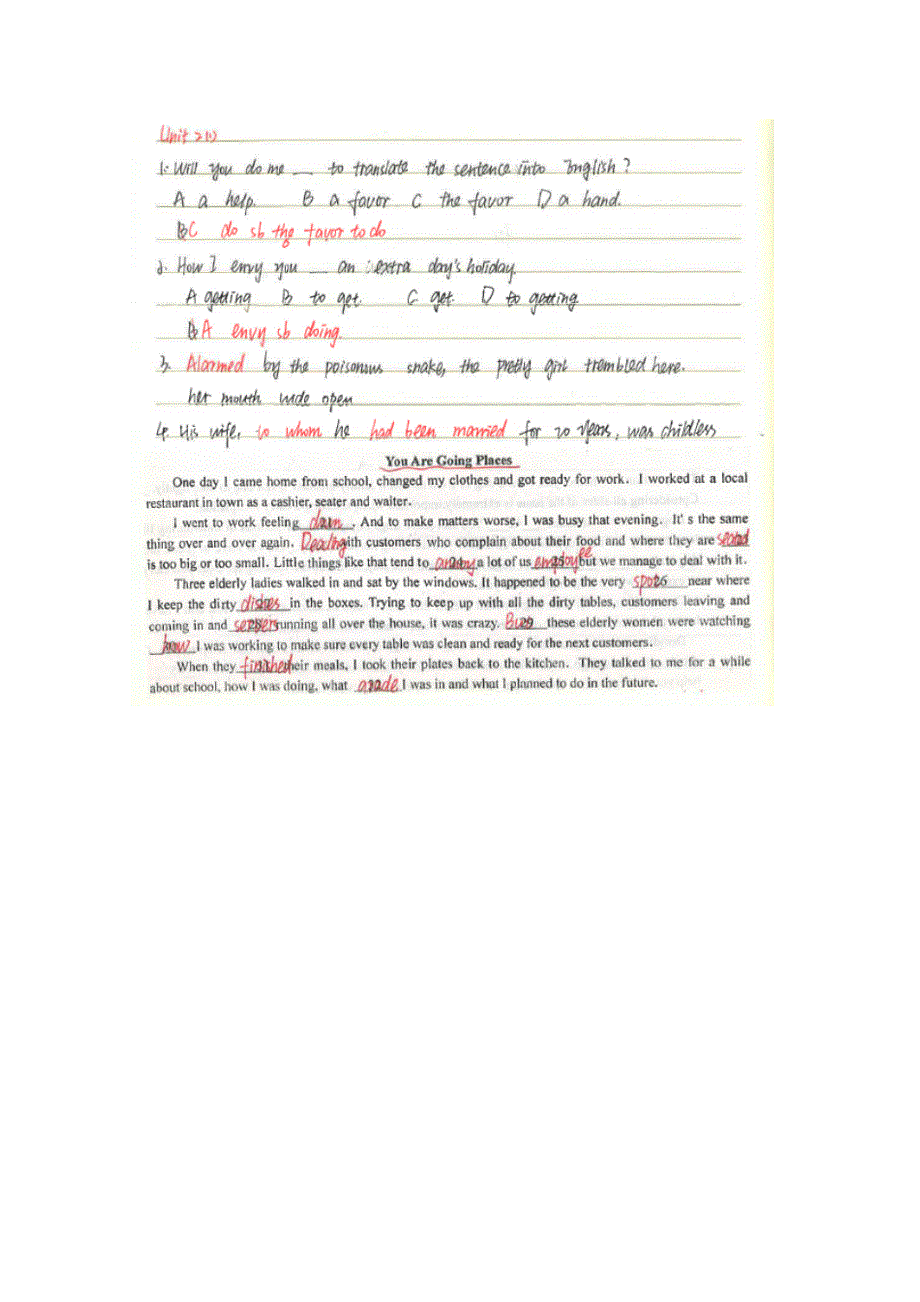 Unit 2 (1)
1. Will you do me __ to translate the sentence into English?
A a help. B a favor C the favor D a hand.
BC do sb the favor to do
2. How I envy you __ an extra day's holiday.
A getting B to get. C get. D to getting
A envy sb doing.
3. Alarmed by the poisonous snake, the pretty girl trembled here.
her mouth wide open
4. His wife, to whom he had been married for 20 years, was childless
You Are Going Places
One day I came home from school, changed my clothes and got ready for work. I worked at a local
restaurant in town as a cashier, seater and waiter.
I went to work feeling down. And to make matters worse, I was busy that evening. It's the same
thing over and over again. Dealing with customers who complain about their food and where they are
is too big or too small. Little things like that tend to annoy a lot of us employee but we manage to deal with it.
Three elderly ladies walked in and sat by the windows. It happened to be the very spot near where
I keep the dirty dishes in the boxes. Trying to keep up with all the dirty tables, customers leaving and
coming in and servers running all over the house, it was crazy. these elderly women were watching
how I was working to make sure every table was clean and ready for the next customers.
When they finished their meals, I took their plates back to the kitchen. They talked to me for a while
about school, how I was doing, what grade I was in and what I planned to do in the future.